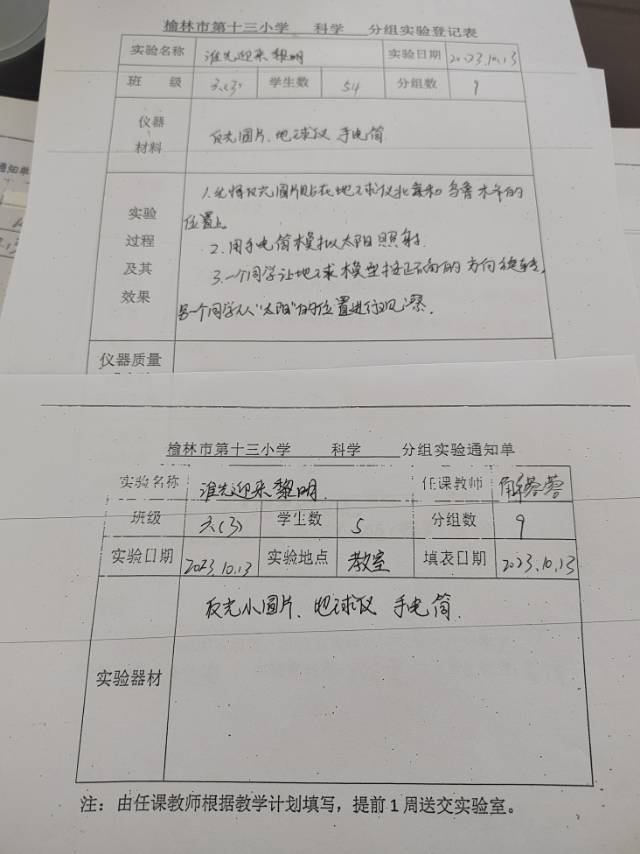 榆林市第十三小学 科学 分组实验登记表
实验名称 谁先迎来黎明 实验日期 2023.10.13
班 级 六(3) 学生数 54 分组数 9
仪器
材料
反光圆片、地球仪 手电筒
实验
过程
及其
效果
1.先将反光圆片贴在地球仪北京和乌鲁木齐的
位置上。
2.用手电筒模拟太阳照射.
3.一个同学让地球模型按正确的方向
另一个同学从"太阳"的位置进行观察.
仪器质量
榆林市第十三小学 科学 分组实验通知单
实验名称 谁先迎来黎明. 任课教师
班级 六(3) 学生数 5 分组数 9
实验日期 2023.10.13 实验地点 教室 填表日期 2023.10.13
实验器材
反光小圆片、地球仪 手电筒.
注：由任课教师根据教学计划填写，提前1周送交实验室。
通知单